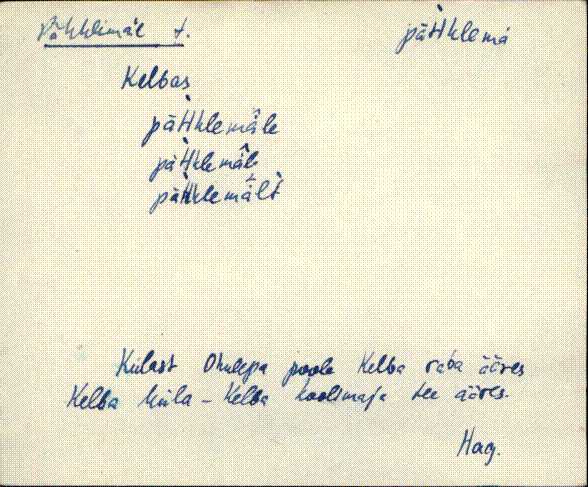 Pähklimäe t. päHklemä
Kelbas
päHklemäle
päHklemäle
päHklemält
Külast Ohulepa poole Kelba raba ääres
Kelba küla - Kelba koolimaja tee ääres.
Hag.